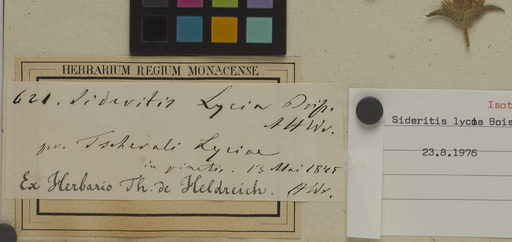 HERBARIUM REGIUM MONACENSE.
621. Sideritis Lycia Boiss.
pr. Tscherali Lyciae
in pinetis. 13 Mai 1845
Ex Herbario Th. de Heldreich.
Isot
Sideritis lycia Bois
23.8.1976